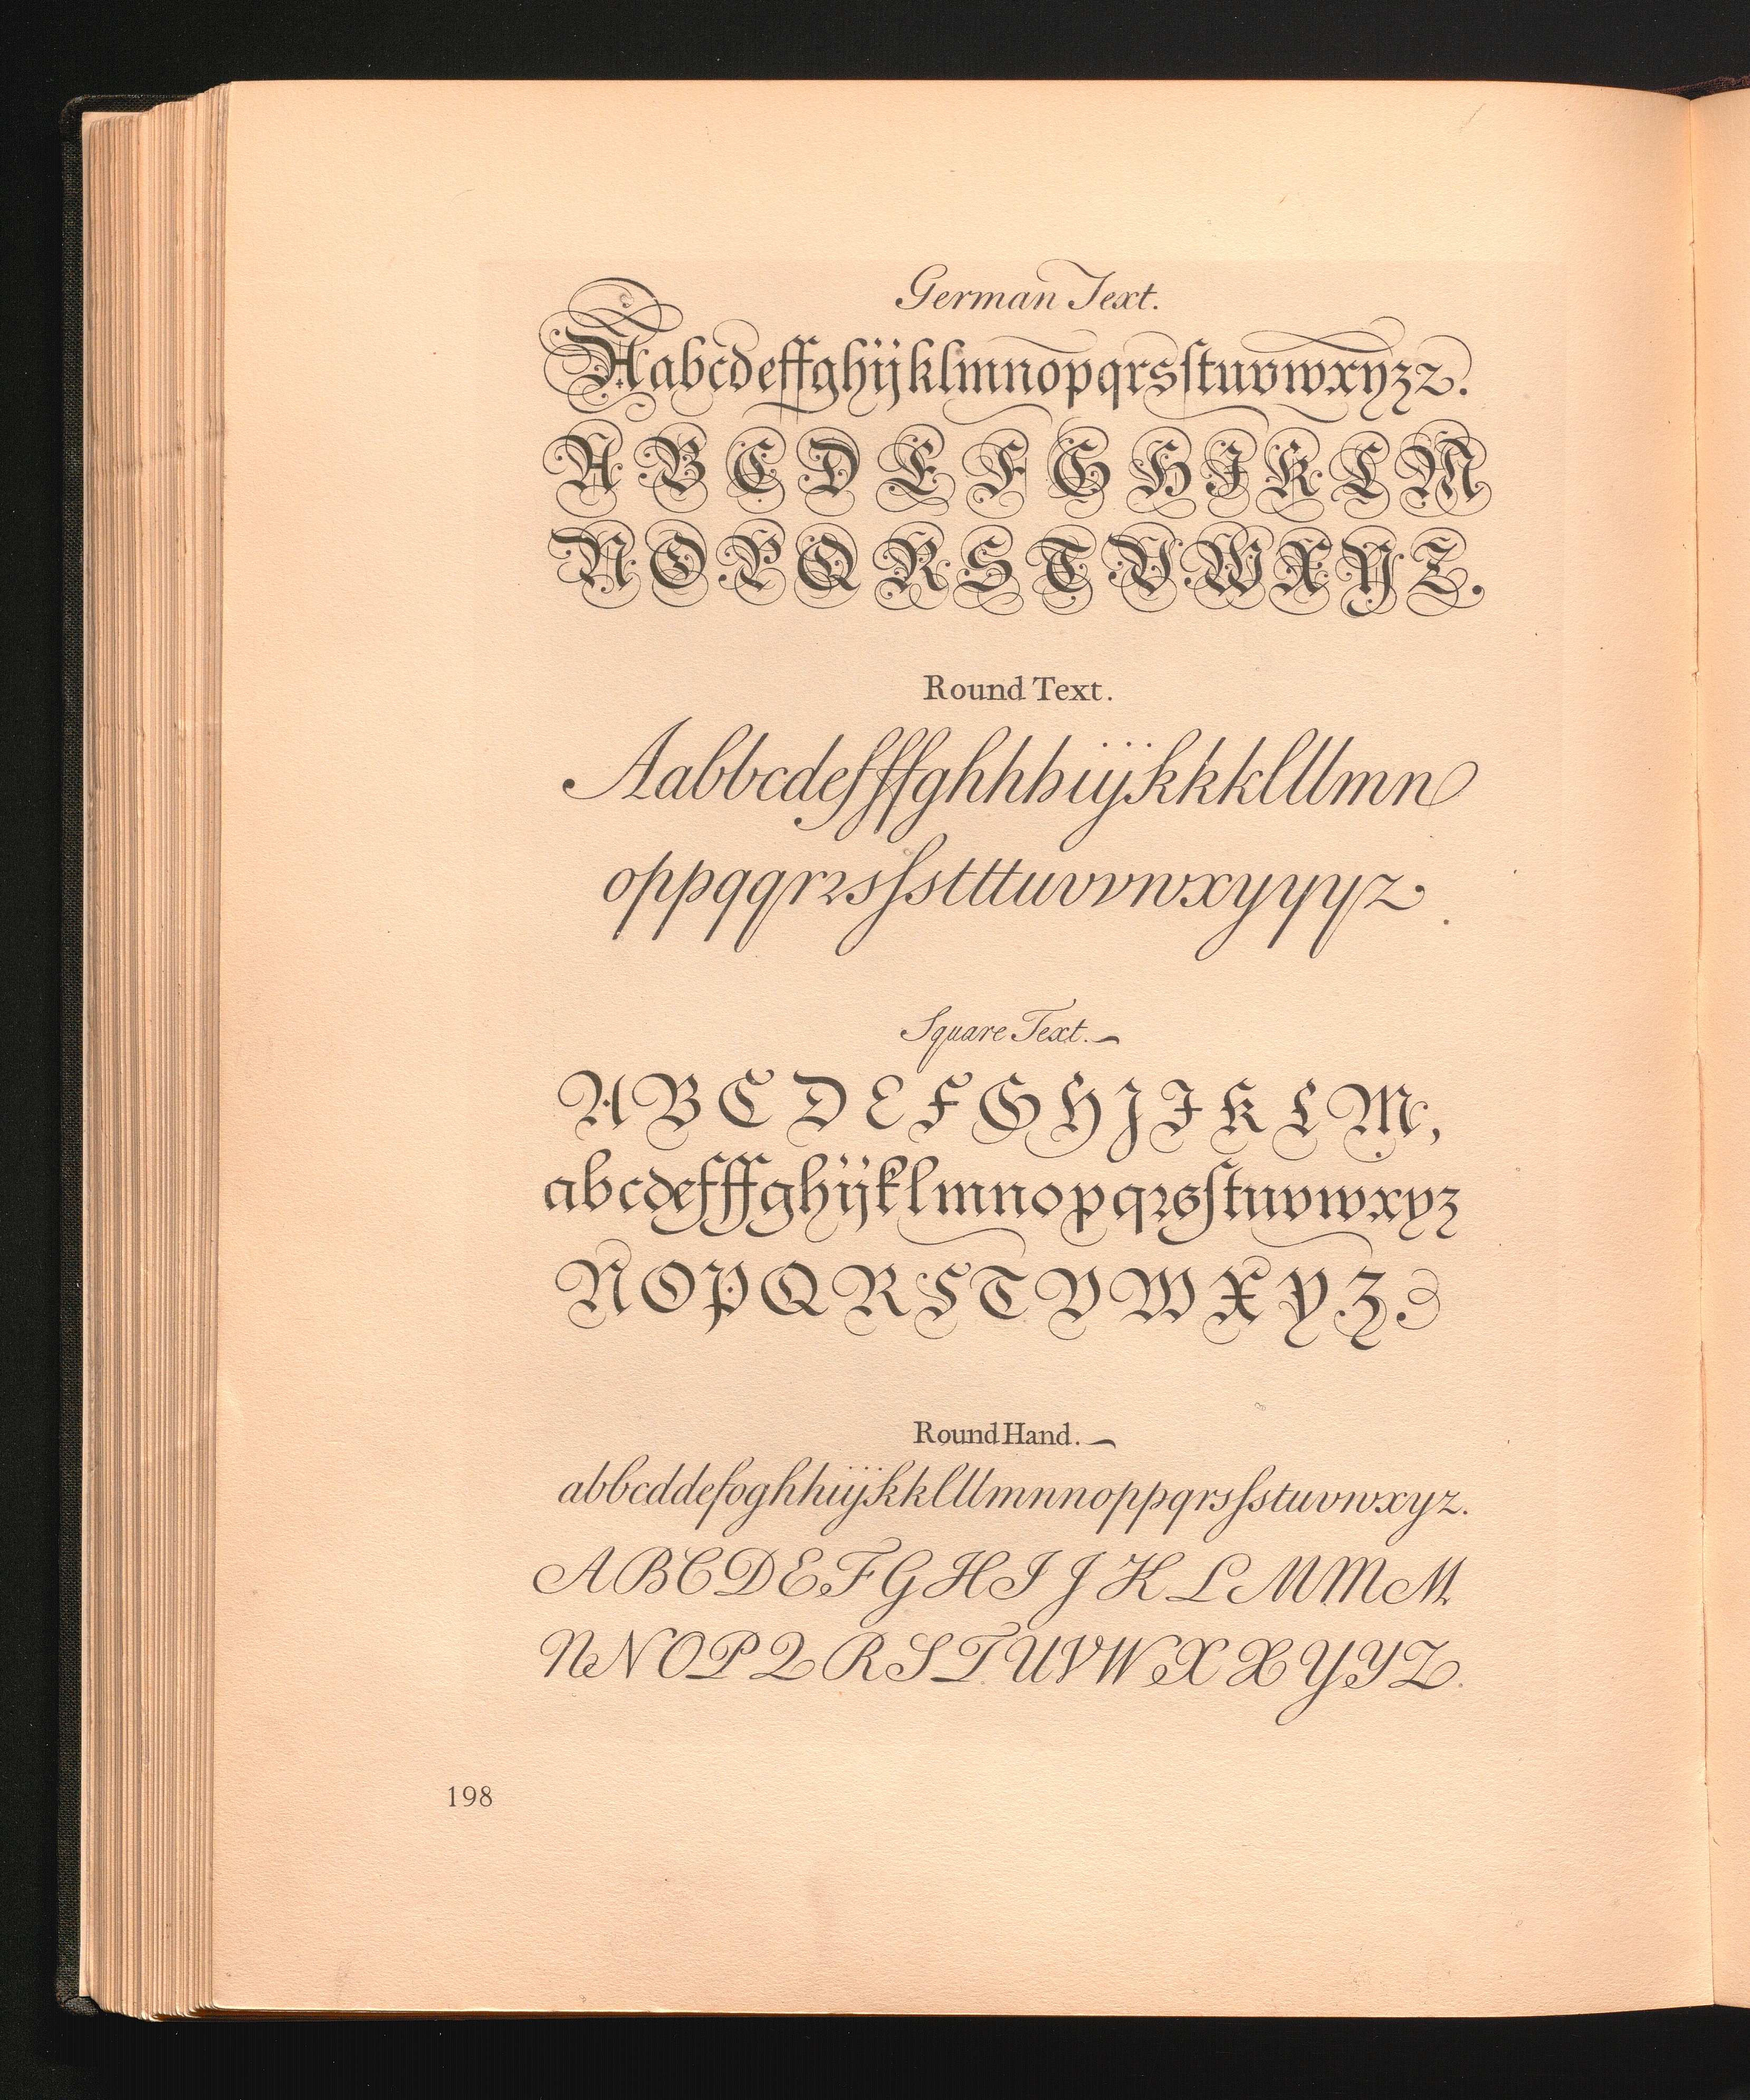 German Text.
Aabcdeffghijklmnopqrsſtuvwxyzz.
A B C D E F G H I K L M
N O P Q R S T V W X Y Z.
Round Text.
Aabbcdefffghhhiÿkkklllmn
oppqqrꝛsſstttuvvwxyyyz.
Square Text.
A B C D E F G H J I K L M,
abcdefffghijklmnopqꝛsſtuvwxyz
N O P Q R S T V W X Y Z.
Round Hand.
abbcddefoghhiijkklllmnnoppqrsſstuvwxyz.
A B C D E F G H I J K L M M M
N N O P Q R S T U V W X X Y Y Z.
198